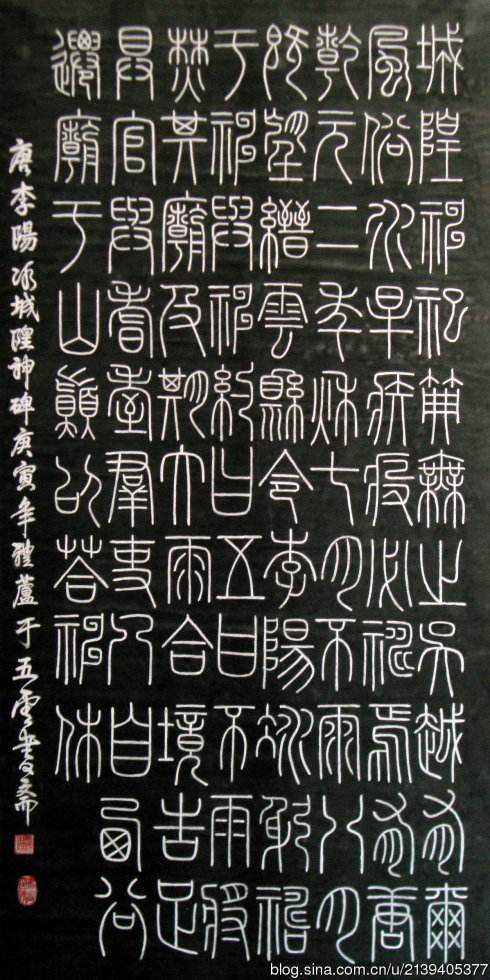 城隍神祀典無之吳越有爾
風俗水旱疾疫必禱焉有唐
乾元二年秋七月不雨八月
既望縉雲縣令李陽冰躬祈
于神與神約曰五日不雨將
焚其廟及期大雨合境告足
具官與耆耋羣吏乃自西谷
遷廟于山巔以荅神休
唐李陽冰城隍神碑庚寅年蘆于五雲書齋
blog.sina.com.cn/u/2139405377